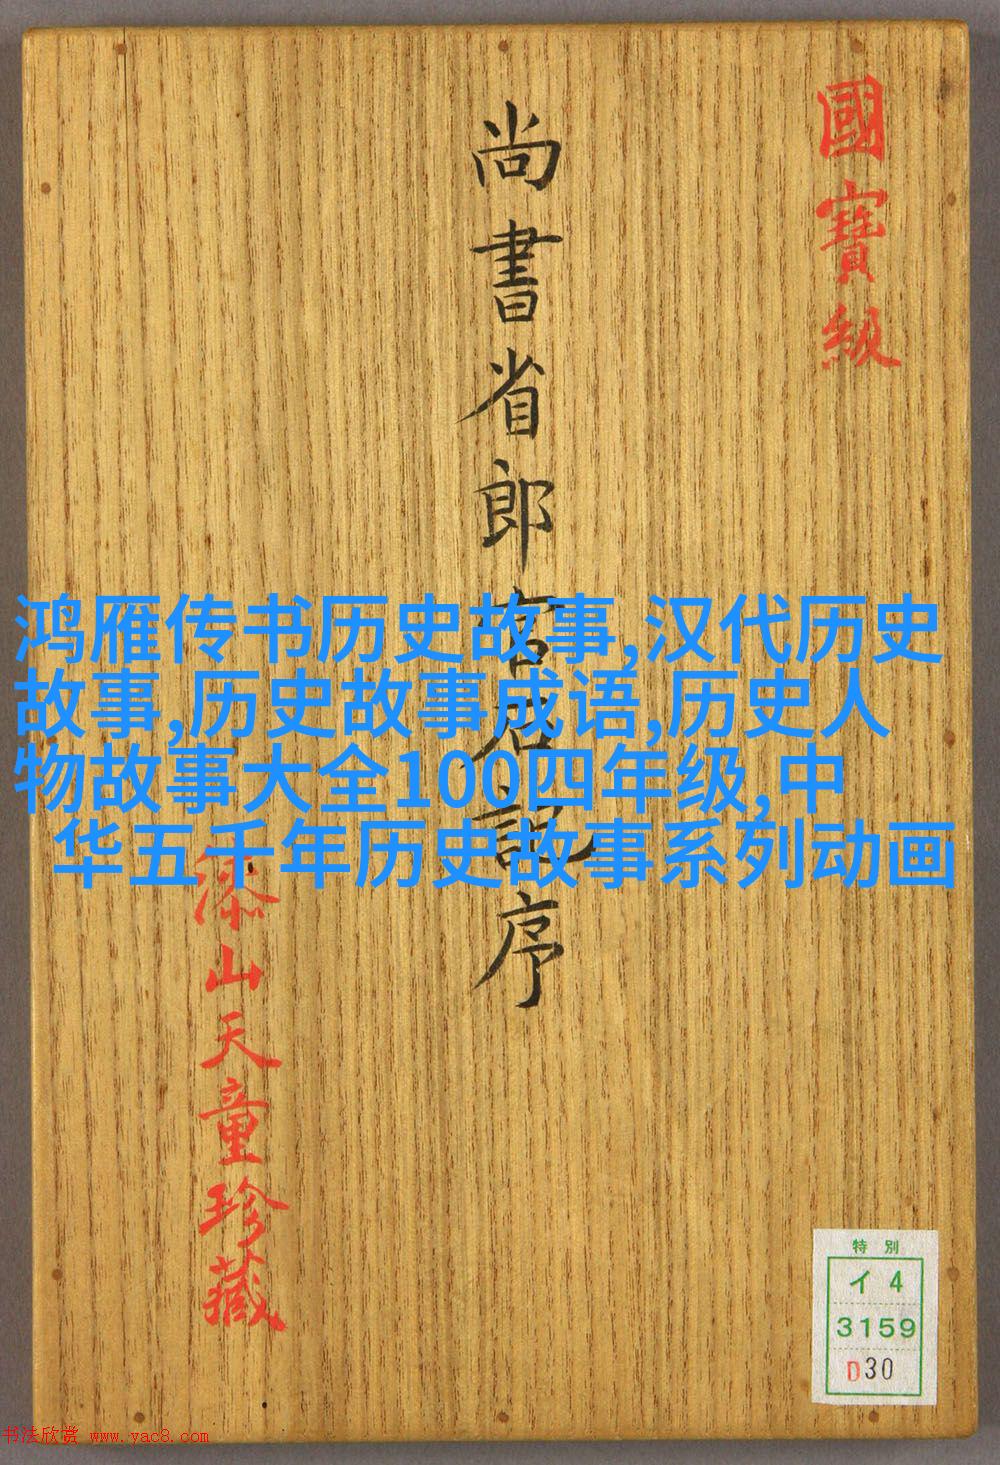 國寶級
尚書省郎官石記序
漆山天童珍藏
鸿雁传书历史故事,汉代历史
故事,历史故事成语,历史人
物故事大全100四年级,中
华五千年历史故事系列动画
特別
イ4
3159
D30
书法欣赏 www.yac8.com